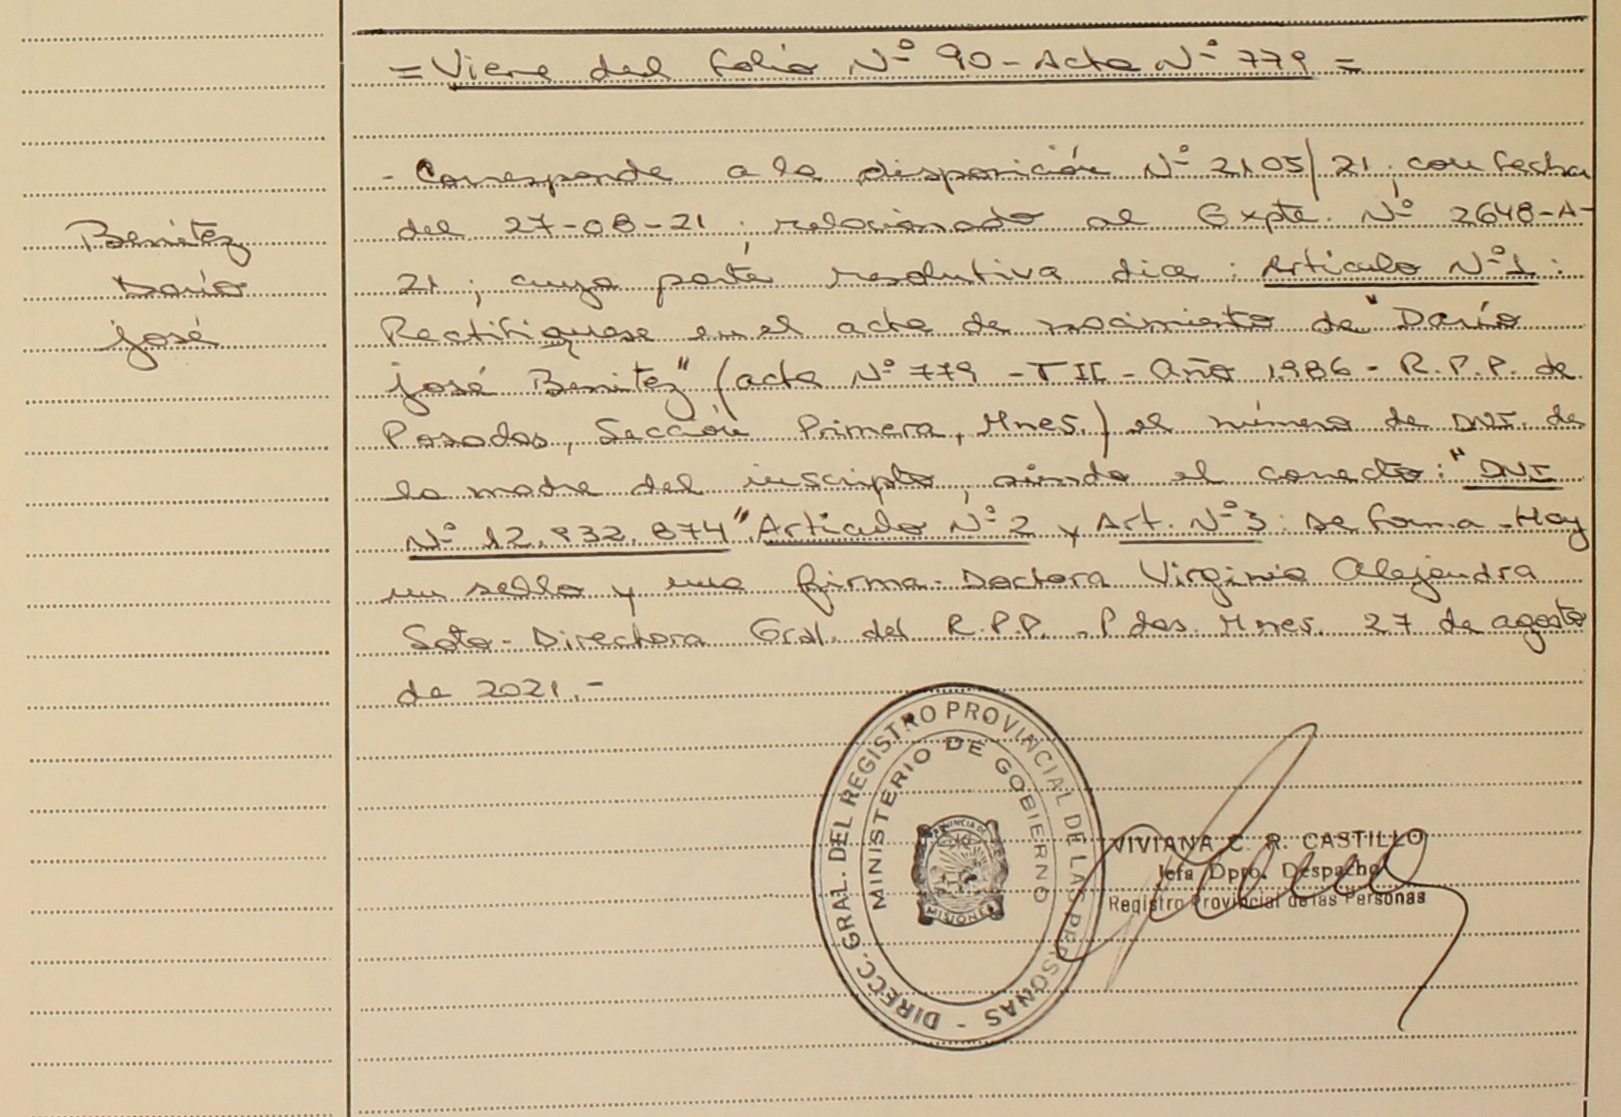 = Viene del folio Nº 90 - Acta Nº 779 =
- Corresponde a la disposición Nº 2105/21, con fecha
del 27-08-21; relacionado al Expte. Nº 2648-A-
21; cuya parte resolutiva dice: Artículo Nº1:
Rectifiquese en el acta de nacimiento de "Darío
josé Benitez" (acta Nº 779 - T II - Año 1986 - R.P.P. de
Posadas, Sección Primera, Mnes.) el número de DNI. de
la madre del inscripto, siendo el correcto: "DNI
Nº 12.832.874" Articulo Nº2 y Art. Nº3: de forma - Hay
un sello y una firma - Doctora Virginia Alejandra
Soto - Directora Gral. del R.P.P. - Pdas. Mnes. 27 de agosto
de 2021.-
Benitez
Darío
josé
DIRECC. GRAL. DEL REGISTRO PROVINCIAL DE LAS PERSONAS -
MINISTERIO DE GOBIERNO
PROVINCIA DE
MISIONES
VIVIANA C. R. CASTILLO
Jefa Dpto. Despacho
Registro Provincial de las Personas